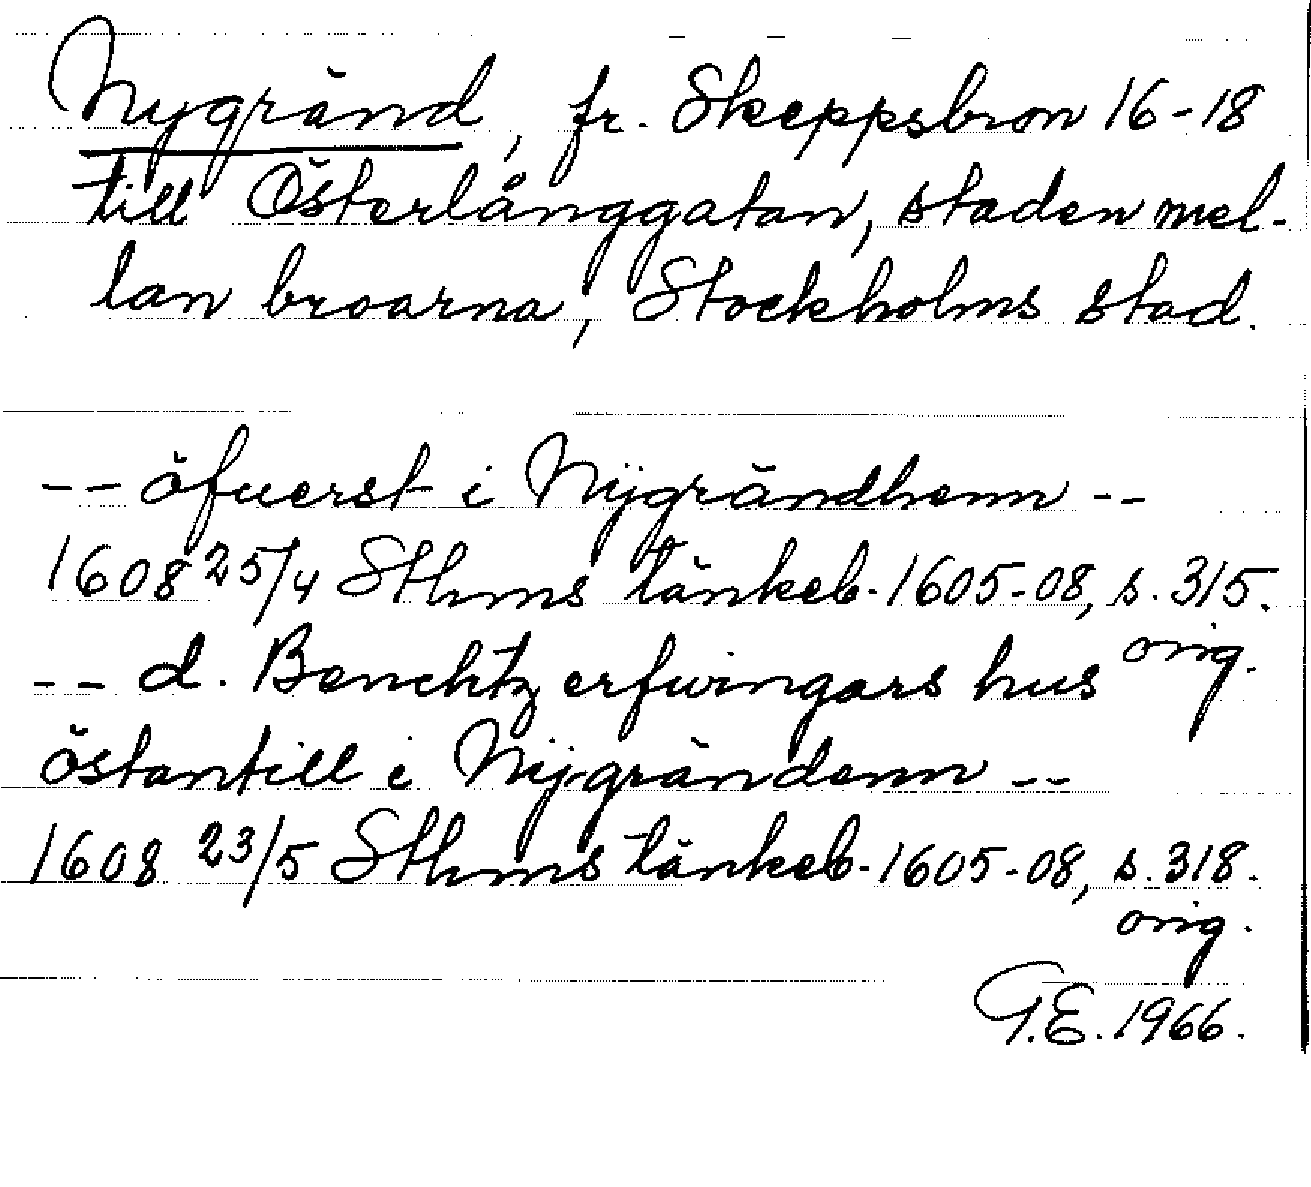 Nygränd, fr. Skeppsbron 16-18
till Österlånggatan, staden mel-
lan broarna, Stockholms stad.
-- öfuerst i Nÿgrändhenn --
1608 25/4 Sthms tänkeb. 1605-08, s. 315.
orig.
-- d. Benchtz erfwingars hus
östantill i Nÿgrändenn --
1608 23/5 Sthms tänkeb. 1605-08, s. 318.
orig.
G.E. 1966.